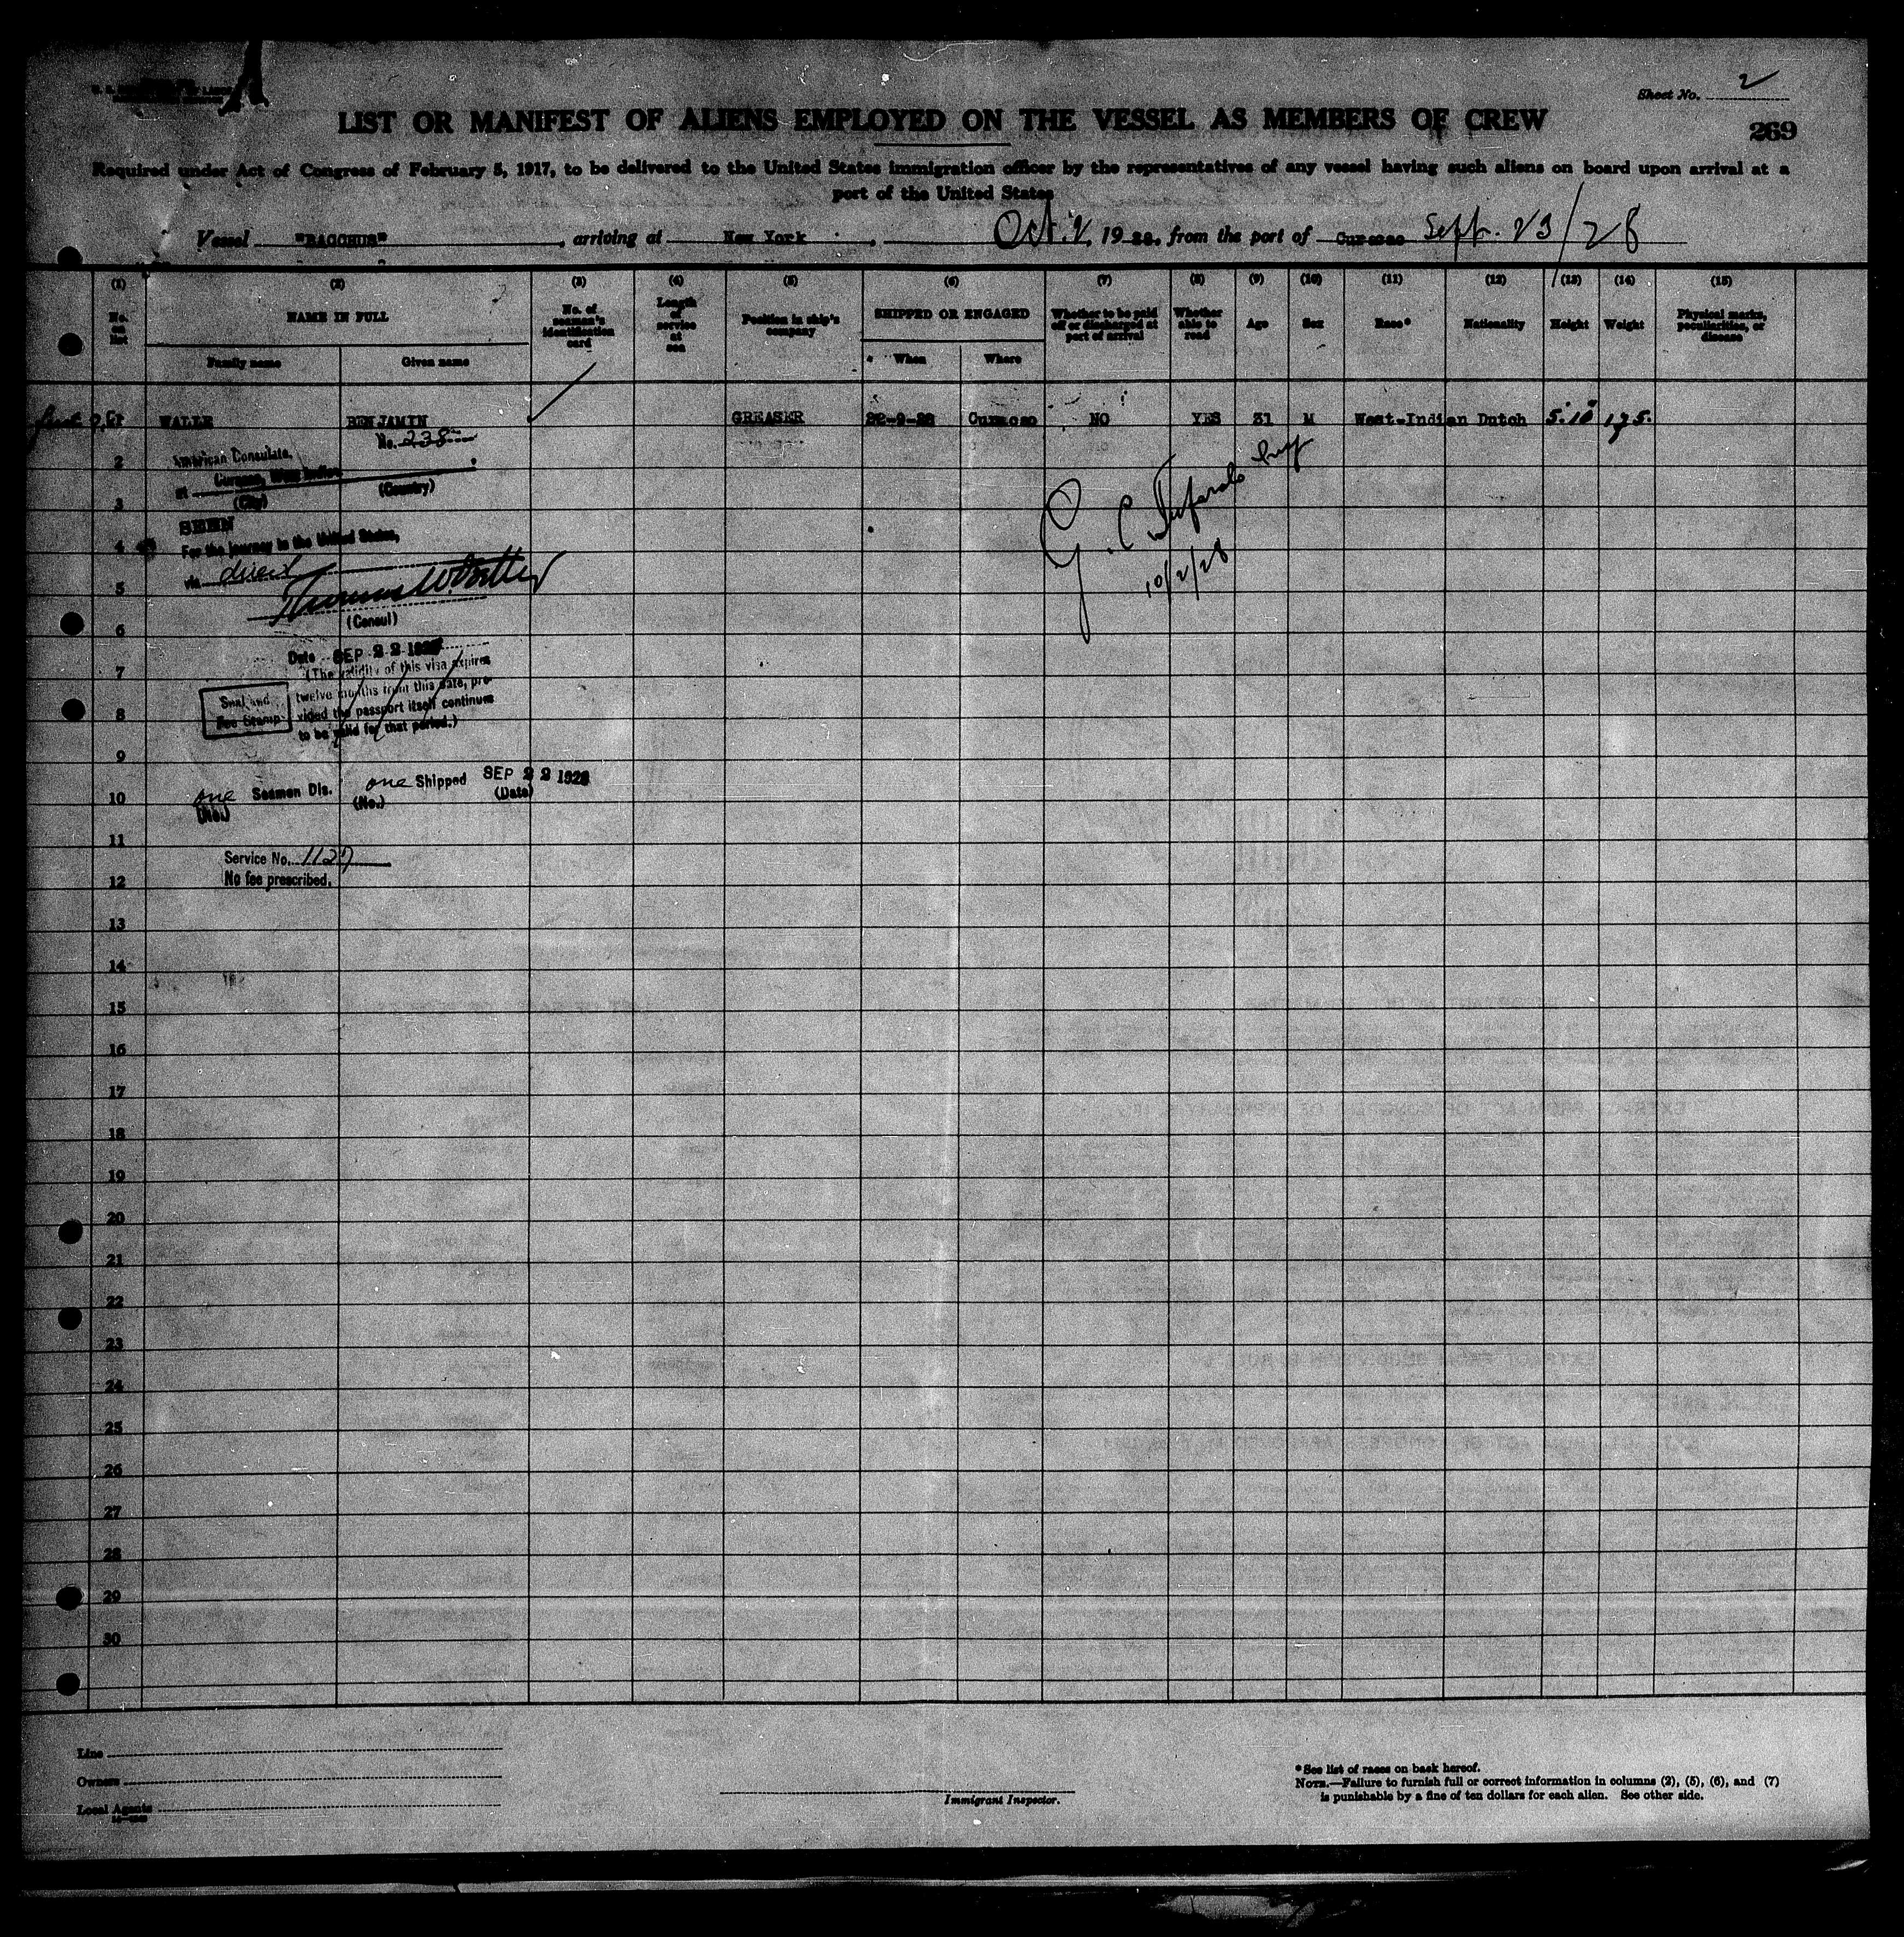 Sheet No. 2
LIST OR MANIFEST OF ALIENS EMPLOYED ON THE VESSEL AS MEMBERS OF CREW
269
Required under Act of Congress of February 5, 1917, to be delivered to the United States immigration officer by the representatives of any vessel having such aliens on board upon arrival at a
port of the United States
Vessel "BACCHUS", arriving at New York, Oct. 2, 1928, from the port of Curacao Sept. 23/28
(1) (2) (3) (4) (5) (6) (7) (8) (9) (10) (11) (12) (13) (14) (15)
No. on list
NAME IN FULL
Family name
Given name
No. of seaman's identification card
Length of service at sea
Position in ship's company
SHIPPED OR ENGAGED
When
Where
Whether to be paid off or discharged at port of arrival
Whether able to read
Age
Sex
Race*
Nationality
Height
Weight
Physical marks, peculiarities, or disease
WALLE BENJAMIN GREASER 22-9-28 Curacao NO YES 31 M West-Indian Dutch 5.10 175.
No. 238
2
American Consulate,
at Curacao, West Indies,
(City) (Country)
3
SEEN
4
For the journey to the United States,
via direct
5
(Consul)
6
G. C. Insp
10/2/28
Date SEP 22 1928
7
(The validity of this visa expires
twelve months from this date, pro-
vided the passport itself continues
to be valid for that period.)
Seal and
Fee Stamp
8
9
10
one Seamen Dis. one Shipped SEP 22 1928
(No.) (No.) (Date)
11
Service No. 1127
12
No fee prescribed.
13
14
15
16
17
18
19
20
21
22
23
24
25
26
27
28
29
30
Line
Owners
Local Agents
Immigrant Inspector.
*See list of races on back hereof.
NOTE.—Failure to furnish full or correct information in columns (2), (5), (6), and (7)
is punishable by a fine of ten dollars for each alien. See other side.